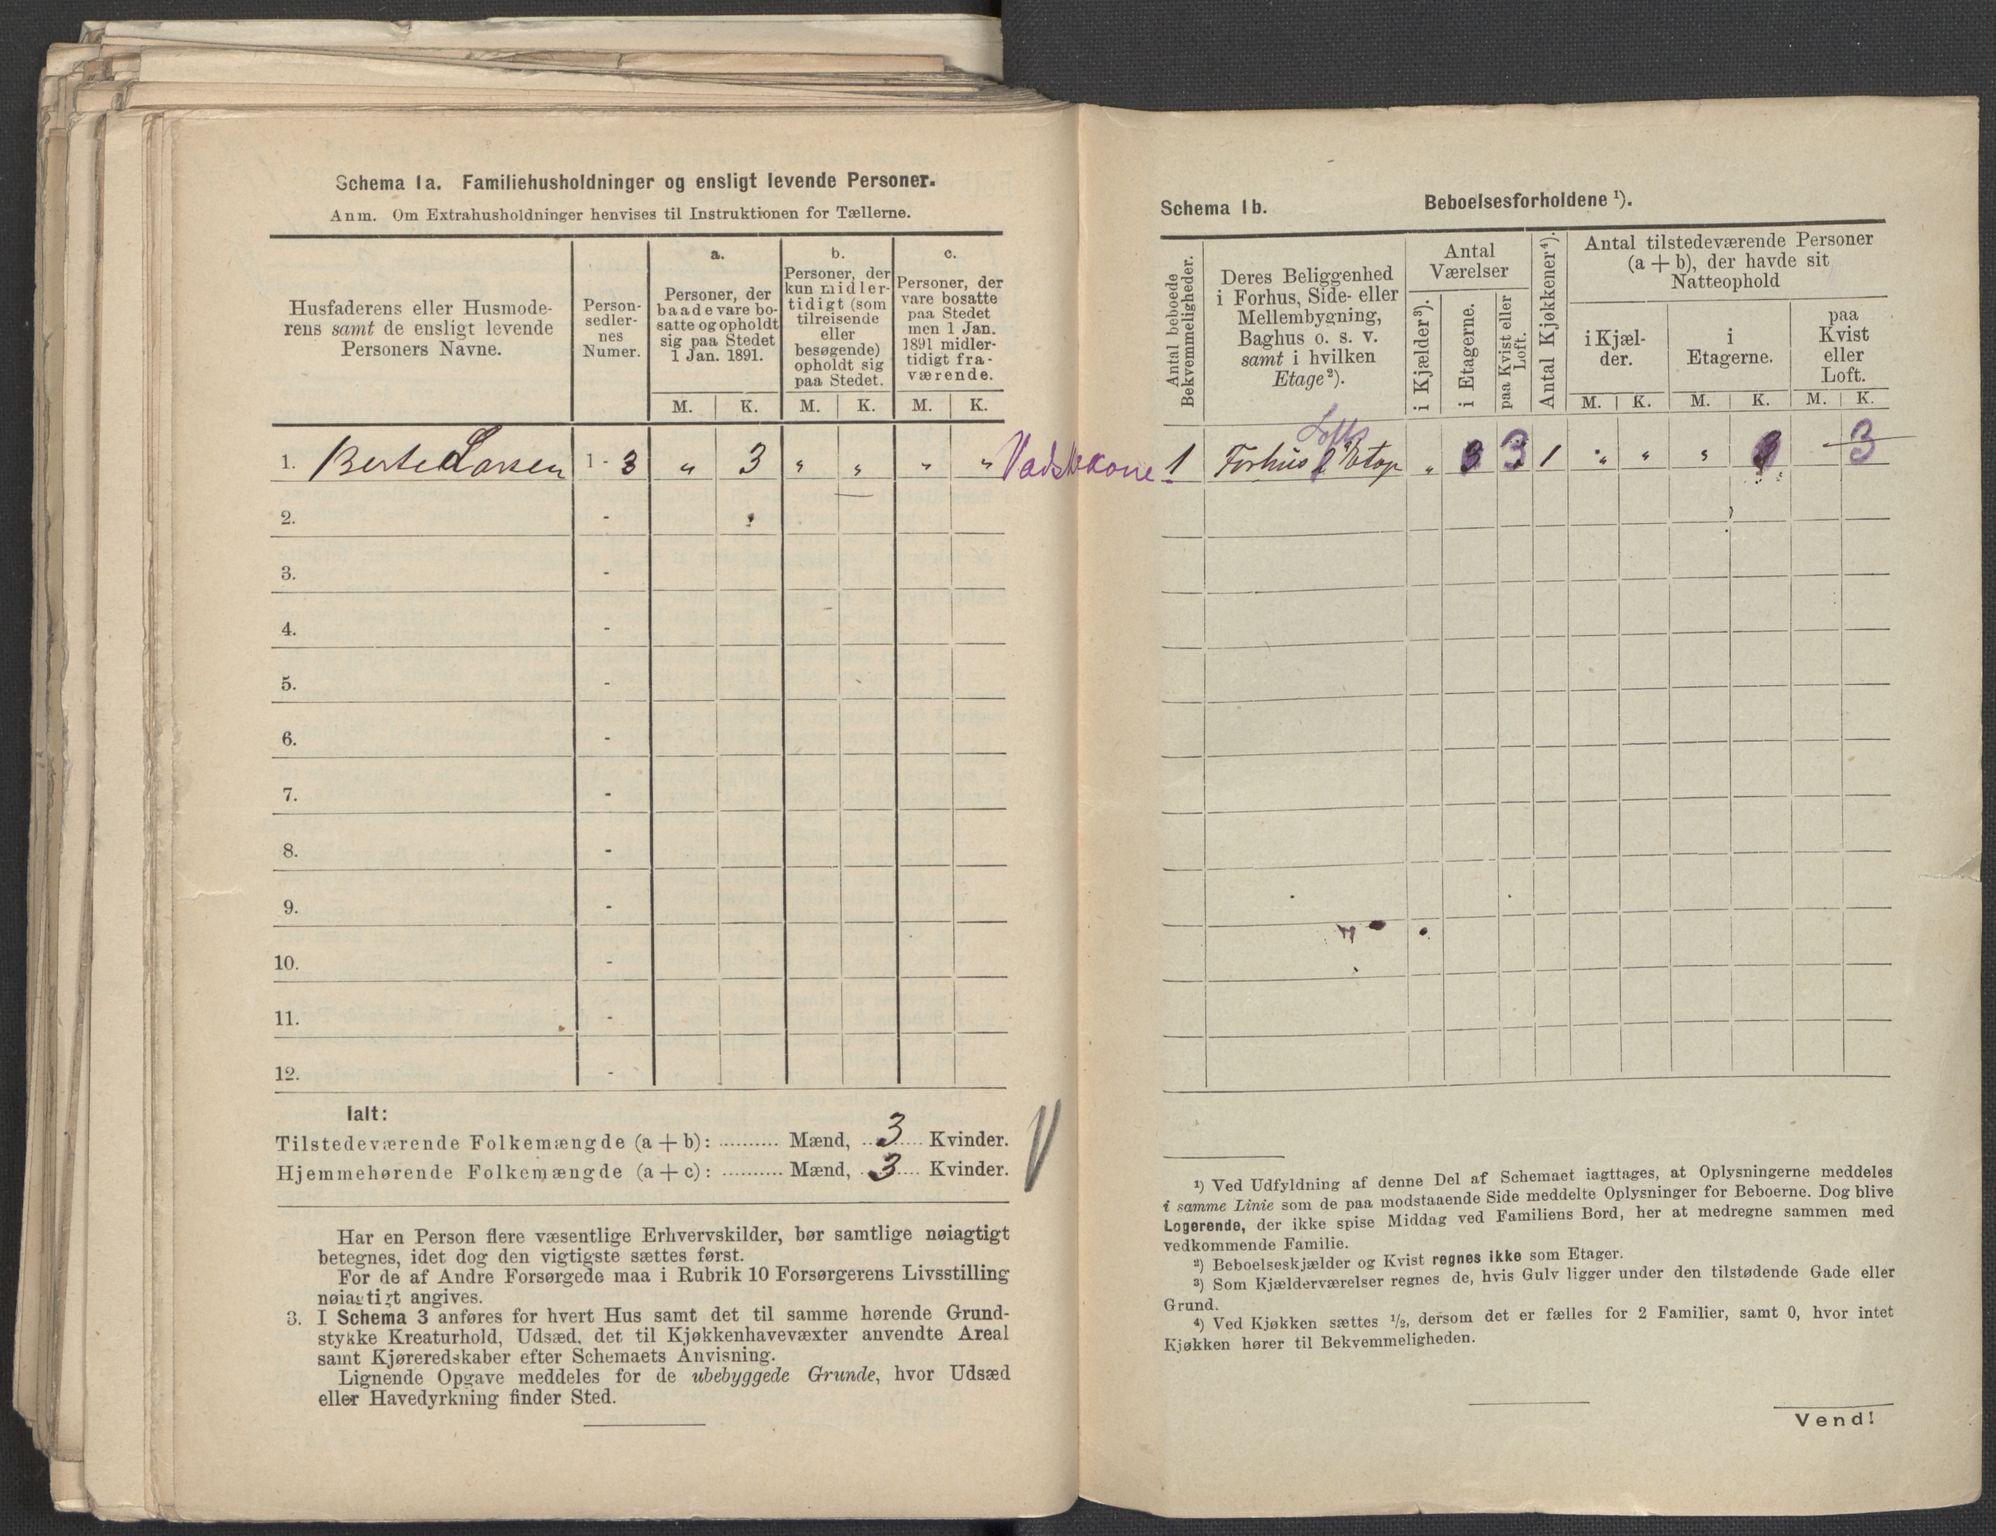 Schema 1a. Familiehusholdninger og ensligt levende Personer.
Anm. Om Extrahusholdninger henvises til Instruktionen for Tællerne.
Husfaderens eller Husmode-
rens samt de ensligt levende
Personers Navne.
Person-
sedler-
nes
Numer.
a.
Personer, der
baade vare bo-
satte og opholdt
sig paa Stedet
1 Jan. 1891.
b.
Personer, der
kun midler-
tidigt (som
tilreisende
eller
besøgende)
opholdt sig
paa Stedet.
c.
Personer, der
vare bosatte
paa Stedet
men 1 Jan.
1891 midler-
tidigt fra-
værende.
M. K. M. K. M. K.
1. Berte Larsen 1 - 3 „ 3 „ „ „ „ Vadskekone
2. -
3. -
4. -
5. -
6. -
7. -
8. -
9. -
10. -
11. -
12. -
Ialt:
Tilstedeværende Folkemængde (a + b): .......... Mænd, 3 Kvinder.
Hjemmehørende Folkemængde (a + c): .......... Mænd, 3 Kvinder.
Har en Person flere væsentlige Erhvervskilder, bør samtlige nøiagtigt
betegnes, idet dog den vigtigste sættes først.
For de af Andre Forsørgede maa i Rubrik 10 Forsørgerens Livsstilling
nøiagtigt angives.
3. I Schema 3 anføres for hvert Hus samt det til samme hørende Grund-
stykke Kreaturhold, Udsæd, det til Kjøkkenhavevæxter anvendte Areal
samt Kjøreredskaber efter Schemaets Anvisning.
Lignende Opgave meddeles for de ubebyggede Grunde, hvor Udsæd
eller Havedyrkning finder Sted.
Schema 1b. Beboelsesforholdene ¹).
Antal beboede
Bekvemmeligheder.
Deres Beliggenhed
i Forhus, Side- eller
Mellembygning,
Baghus o. s. v.
samt i hvilken
Etage²).
Antal
Værelser
i Kjælder³).
i Etagerne.
paa Kvist eller
Loft.
Antal Kjøkkener⁴).
Antal tilstedeværende Personer
(a + b), der havde sit
Natteophold
i Kjæl-
der.
i
Etagerne.
paa
Kvist
eller
Loft.
M. K. M. K. M. K.
Loft
1 Forhus Etag „ 3 3 1 „ „ „ 3 3
¹) Ved Udfyldning af denne Del af Schemaet iagttages, at Oplysningerne meddeles
i samme Linie som de paa modstaaende Side meddelte Oplysninger for Beboerne. Dog blive
Logerende, der ikke spise Middag ved Familiens Bord, her at medregne sammen med
vedkommende Familie.
²) Beboelseskjælder og Kvist regnes ikke som Etager.
³) Som Kjælderværelser regnes de, hvis Gulv ligger under den tilstødende Gade eller
Grund.
⁴) Ved Kjøkken sættes ½, dersom det er fælles for 2 Familier, samt 0, hvor intet
Kjøkken hører til Bekvemmeligheden.
Vend!